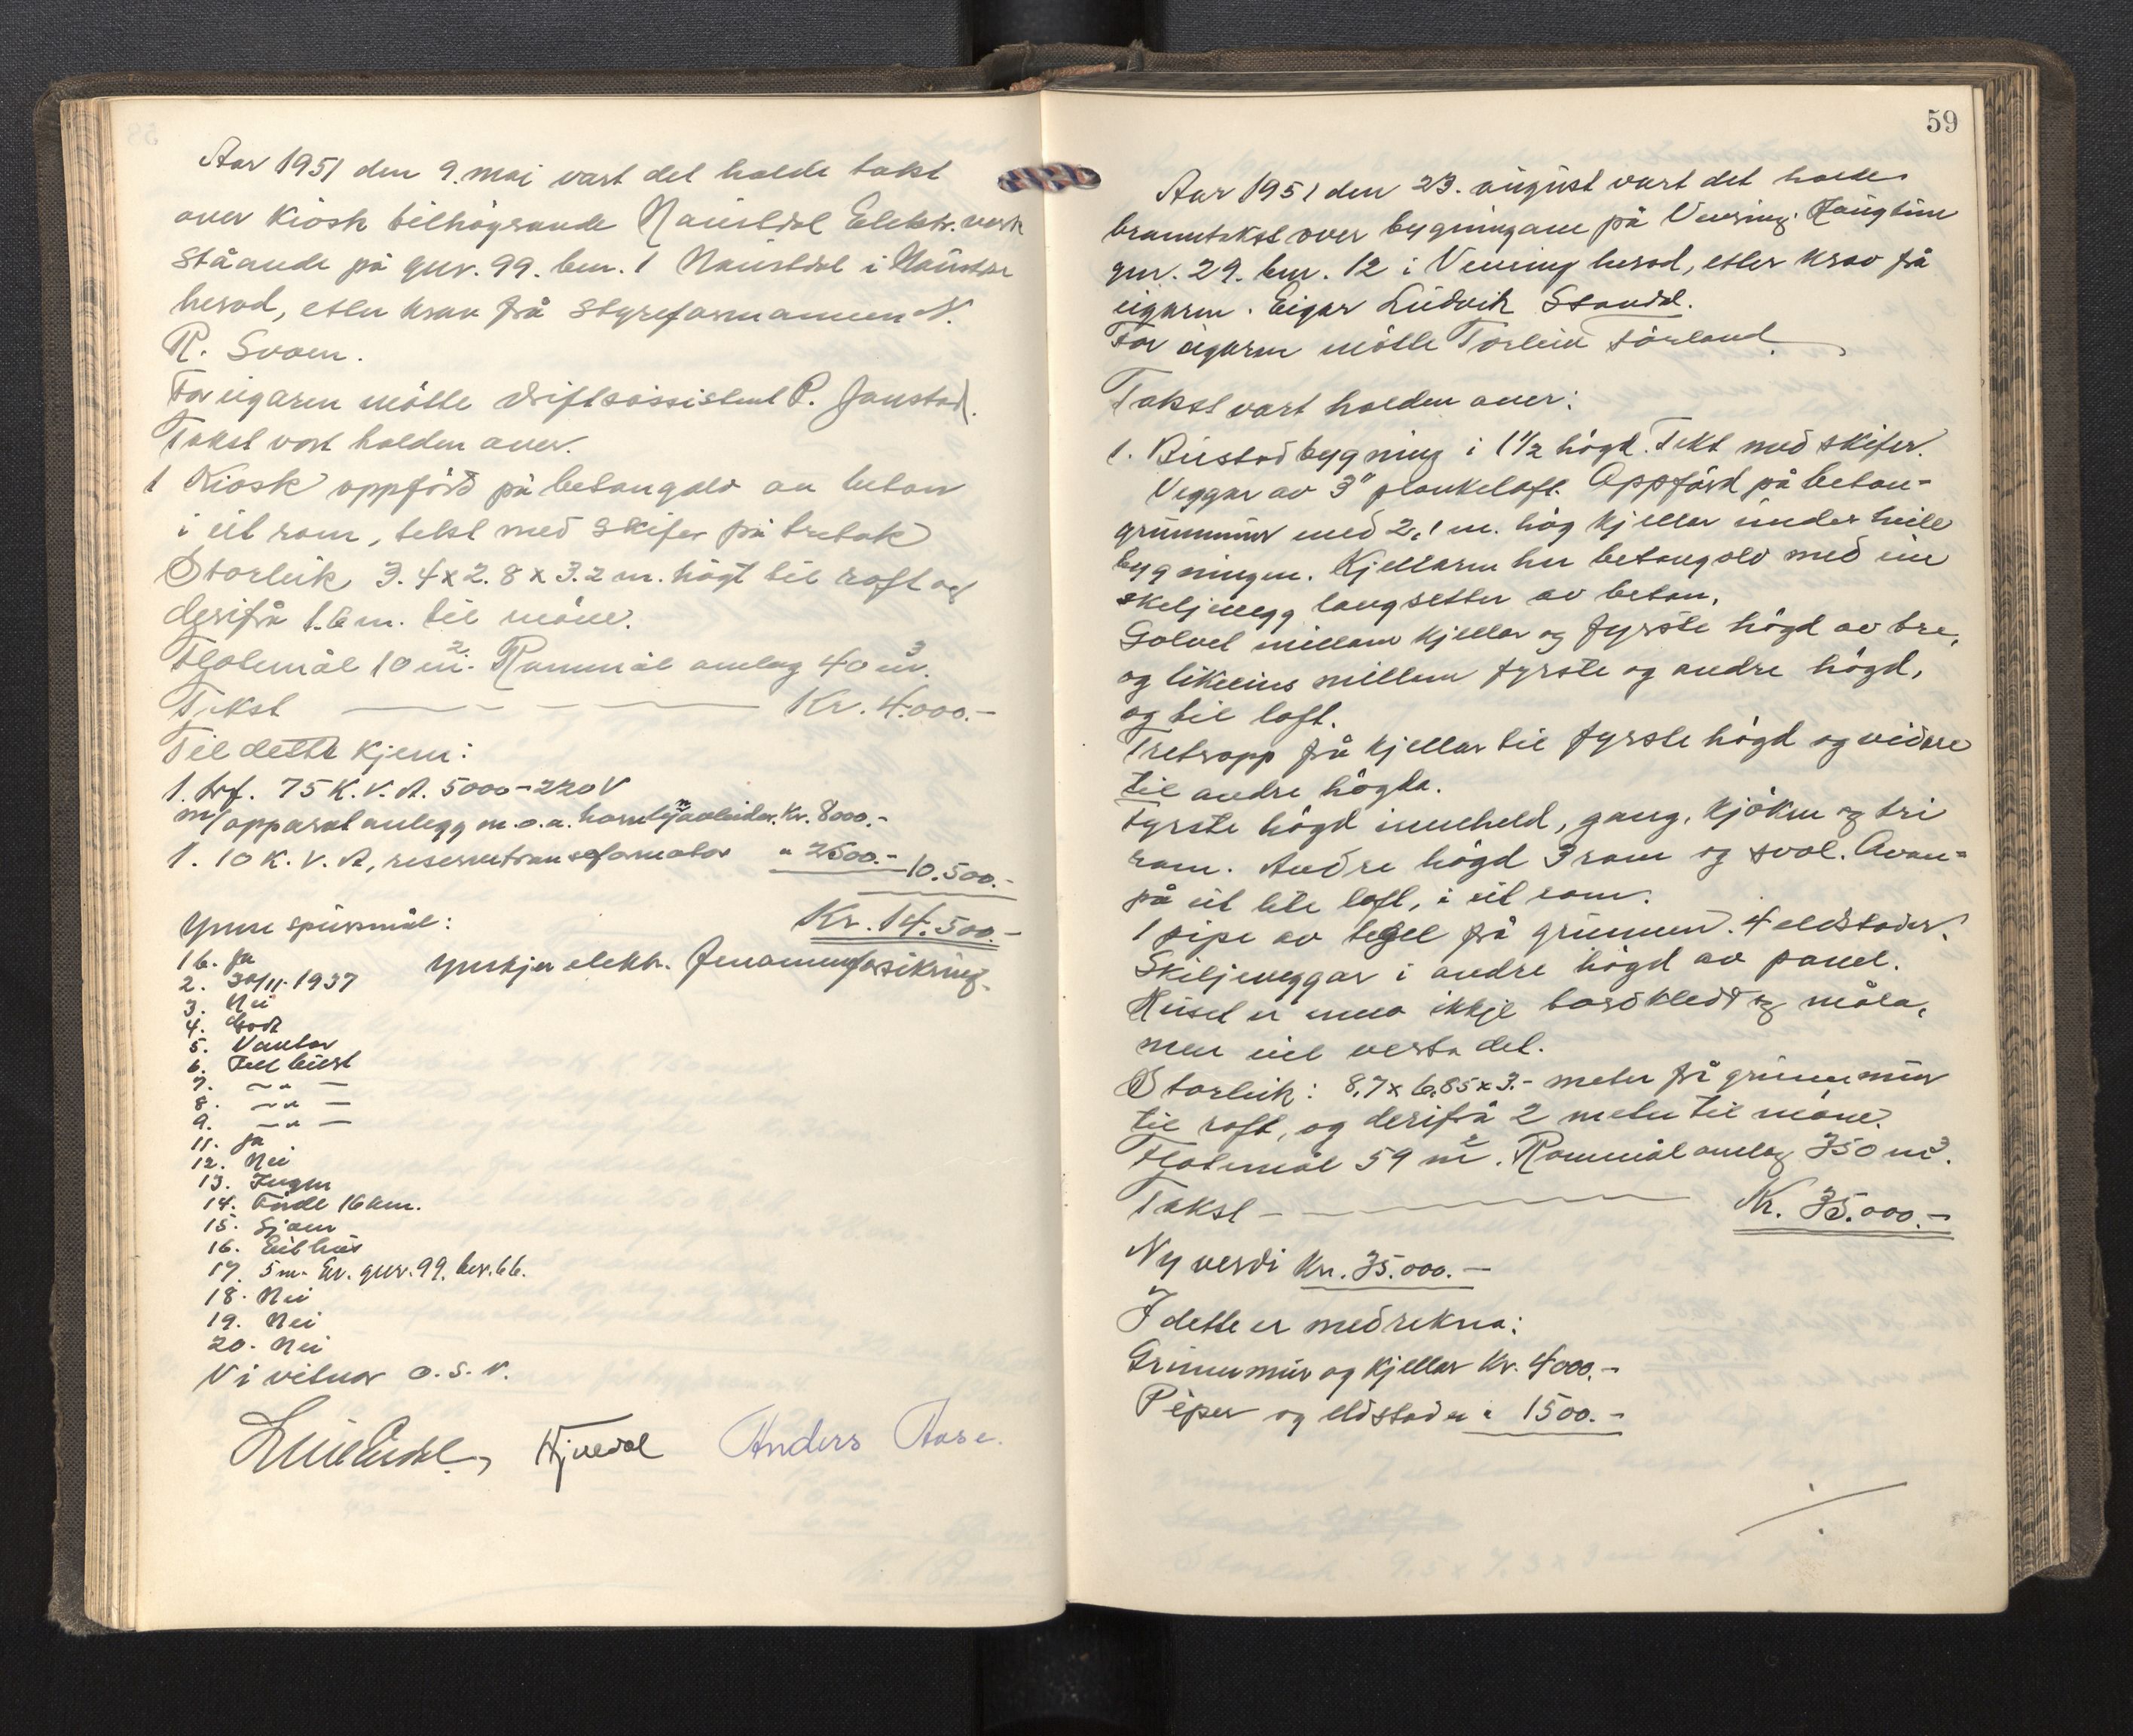 Aar 1951 den 9. mai vart det halde takst
over Kiosk tilhøyrande Naustdal Elektr. verk
Ståande på gnr. 99. bnr. 1 Naustdal i Naustdal
herad, etter krav frå Styreformannen N.
R. Svoen.
For eigaren møtte driftsassistent P. Jonstad.
Takst vart halden over.
1 Kiosk oppførd på betongolv av beton
i eit rom, tekt med skifer på tretak
Storleik 3.4 x 2.8 x 3.2 m. høgt til raft og
derifrå 1.6 m. til møne.
Flatemål 10 m². Rommål omlag 40 m³.
Takst — — — — Kr. 4.000.-
Til dette kjem:
1. trf. 75 K.V.A. 5000-220V
m/ apparatanlegg m.o.a. hornlynavleidar. Kr. 8000.-
1. 10 K.V.A, reservetransformator " 2500.- 10.500.-
Kr. 14.500.-
Ymse spursmål:
1b. Ja
Ynskjer elektr. fenomenforsikring.
2. 30/11-1937
3. Nei
4. God
5. Vanlar
6. Ikkje bust
7. — " —
8. — " —
9. — " —
11. Ja
12. Nei
13. Ingen
14. Førde 16 km.
15. Sjøen
16. Eit hus
17. 5 m. Er. gnr. 99. bnr. 66.
18. Nei
19. Nei
20. Nei
Vi vitnar o.s.v.
Hjuedal Anders Aase.
59
Aar 1951 den 23. august vart det halde
branntakst over bygningane på Vevring, Haugtun
gnr. 29. bnr. 12 i Vevring herad, etter krav frå
eigaren. Eigar Ludvik Standal.
For eigaren møtte Torleiv Førland.
Takst vart halden over:
1. Bustadbygning i 1½ høgd. Tekt med skifer.
Veggar av 3" plankelaft. Oppførd på beton=
grunnmur med 2,1 m. høg kjellar under heile
bygningen. Kjellaren har betongolv med ein
skiljevegg langsetter av beton.
Golvet millom kjellar og fyrste høgd av tre,
og likeeins millom fyrste og andre høgd,
og til loft.
Tretropp frå kjellar til fyrste høgd og vidare
til andre høgda.
Fyrste høgd inneheld, gang, kjøken og tri
rom. Andre høgd 3 rom og sval. Ovan=
på eit lite loft, i eit rom.
1 pipe av tegel frå grunnen. 4 eldstader.
Skiljeveggar i andre høgd av panel.
Huset er enno ikkje bordkledd og måla,
men vil verta det.
Storleik: 8,7 x 6,85 x 3.- meter frå grunnmur
til raft, og derifrå 2 meter til møne.
Flatemål 59 m². Rommål omlag 350 m³.
Takst — — — Kr. 35.000.-
Ny verdi Kr. 35.000.-
I dette er medrekna:
Grunnmur og kjellar Kr. 4000.-
Piper og eldstader " 1500.-